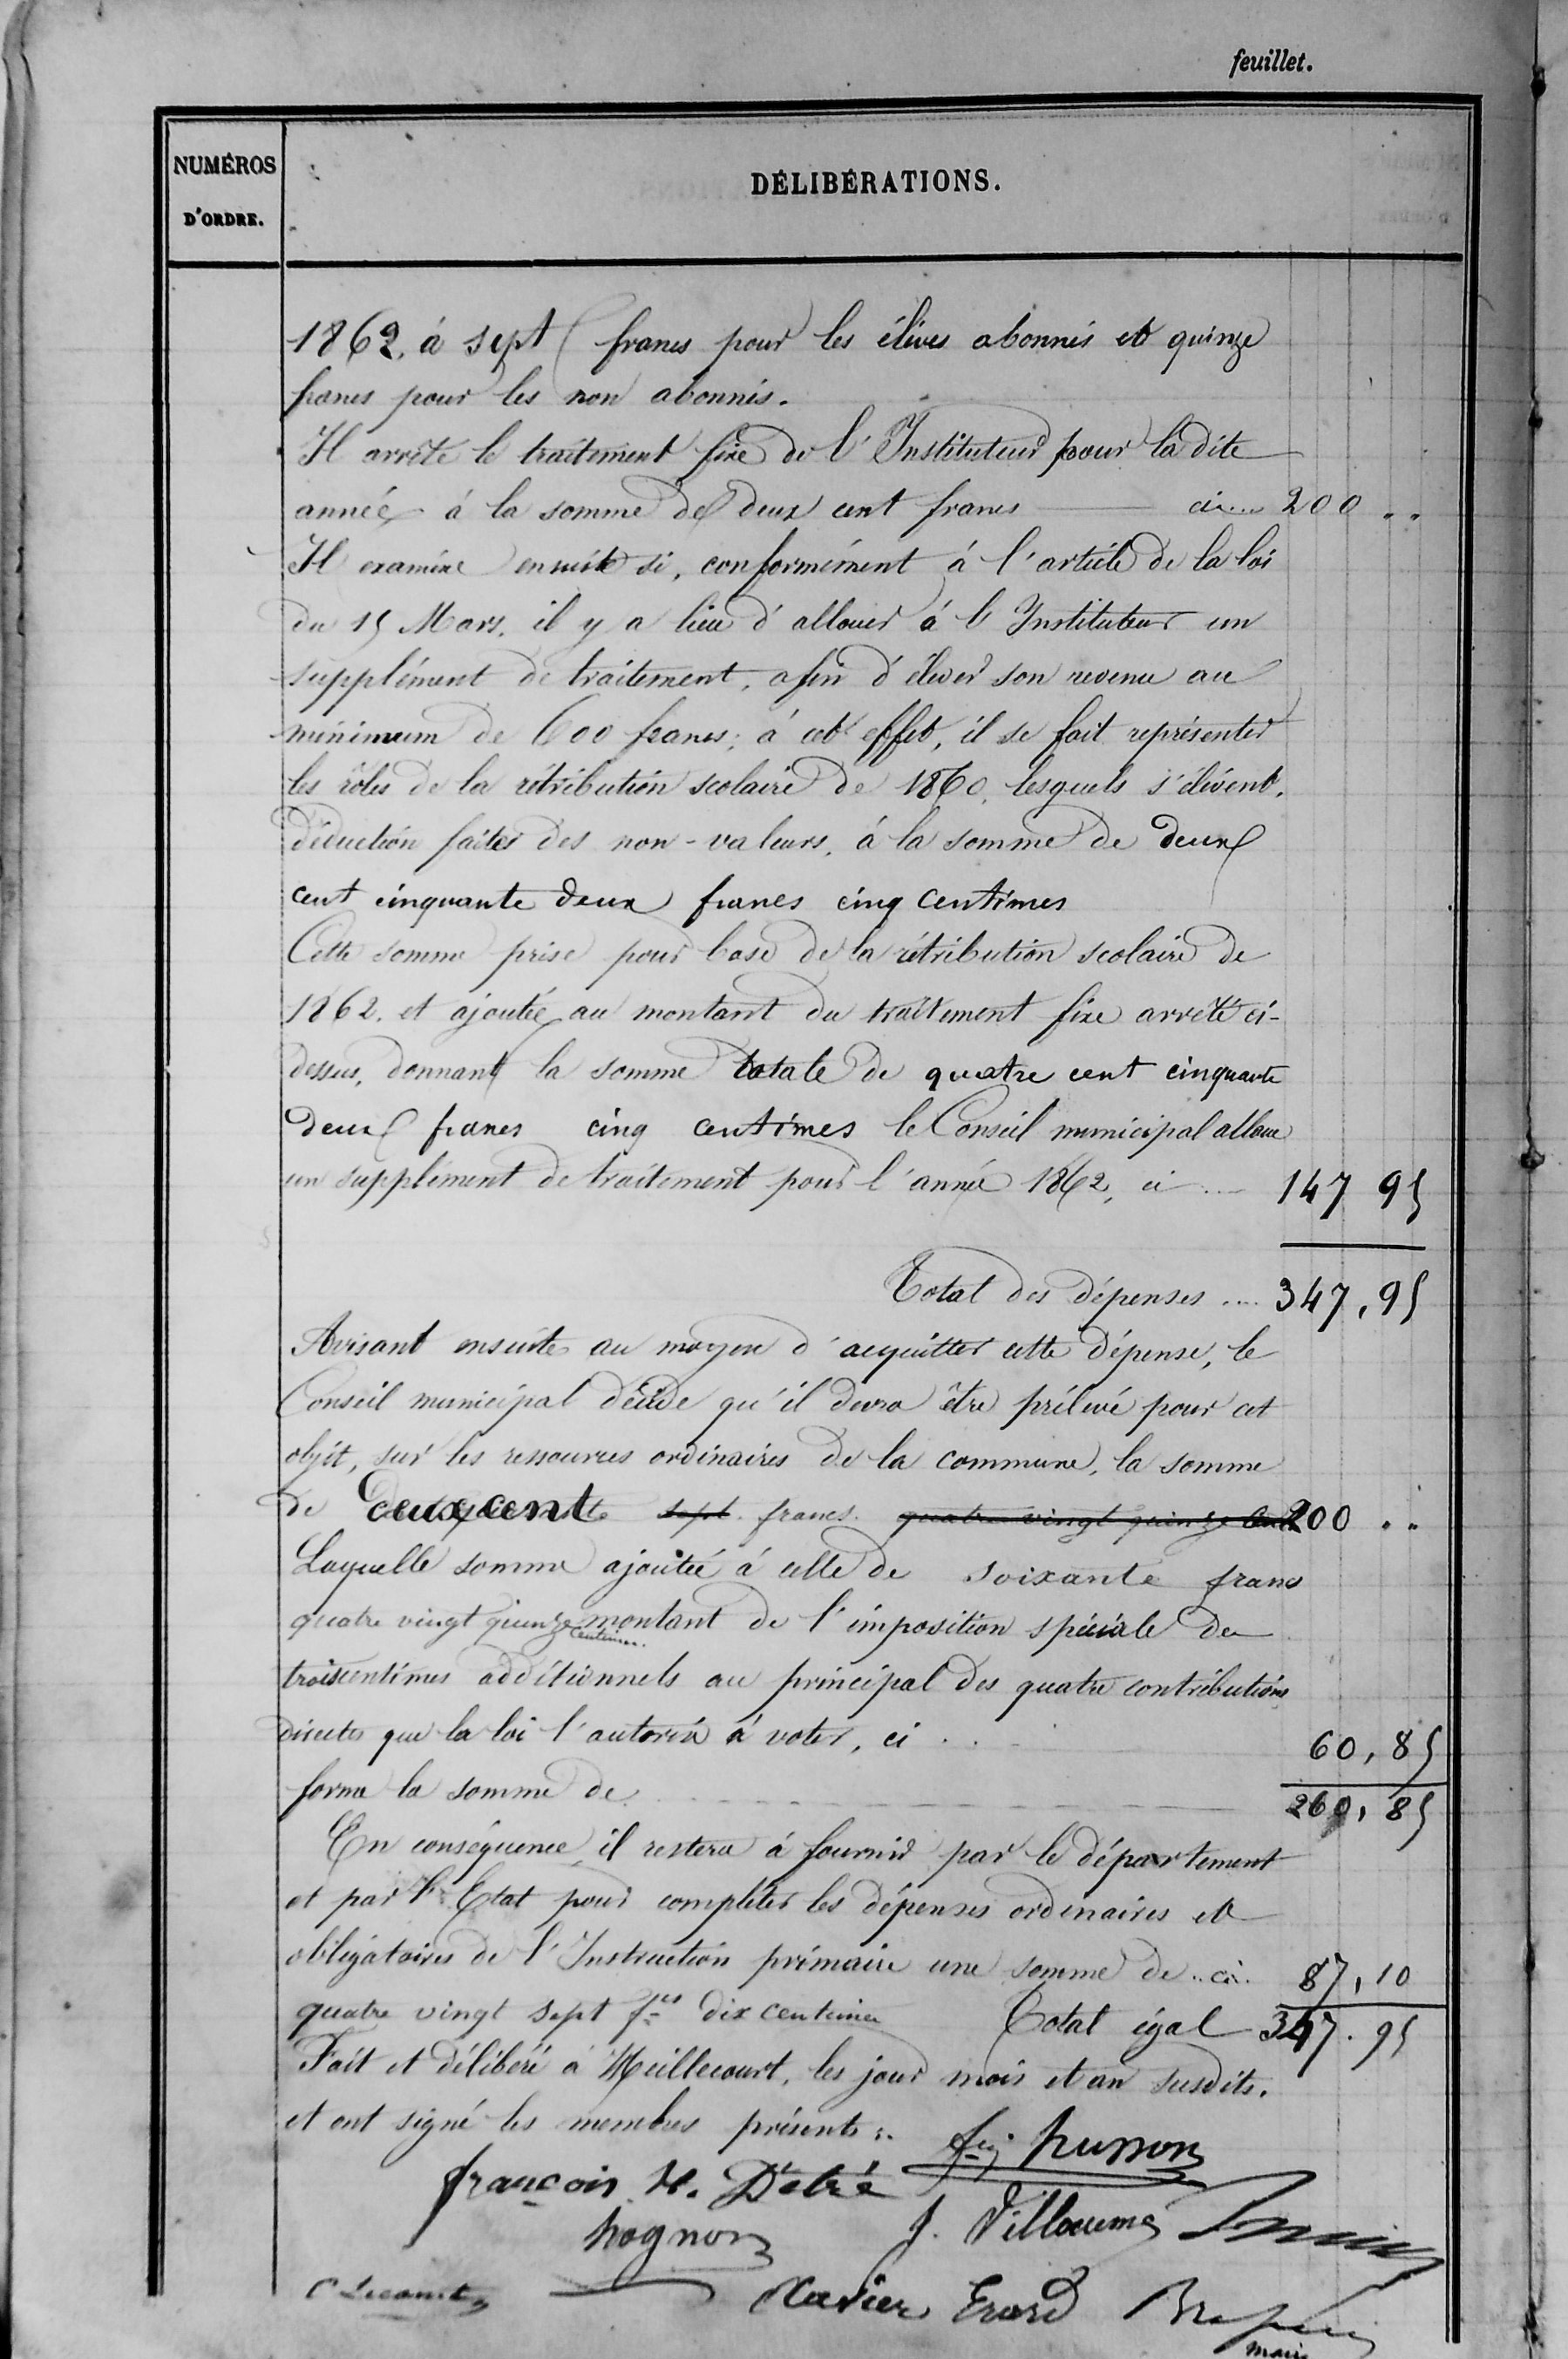 feuillet.
NUMÉROS
D'ORDRE.
DÉLIBÉRATIONS.
1862, à sept francs pour les élèves abonnés et quinze
francs pour les non abonnés.
Il arrête le traitement fixe de l'Instituteur pour la dite
année à la somme de deux cent francs ci.... 200 ..
Il examine ensuite si, conformément à l'article de la loi
du 15 Mars, il y a lieu d'allouer à l'Instituteur un
supplément de traitement, afin d'élever son revenu au
minimum de 600 francs; à cet effet, il se fait représenter
les rôles de la rétribution scolaire de 1860, lesquels s'élèvent,
déduction faites des non-valeurs, à la somme de deux
cent cinquante deux francs cinq centimes
Cette somme prise pour base de la rétribution scolaire de
1862, et ajoutée au montant du traitement fixe arrêté ci-
dessus, donnant la somme totale de quatre cent cinquante
deux francs cinq centimes le Conseil municipal alloue
un supplément de traitement pour l'année 1862, ci .... 147 95
Total des dépenses .... 347,95
Avisant ensuite au moyen d'acquitter cette dépense, le
Conseil municipal décide qu'il devra être prélevé pour cet
objet, sur les ressources ordinaires de la commune, la somme
de deux cent sept francs. quatre vingt quinze cent 200 ..
Laquelle somme ajoutée à celle de soixante francs
quatre vingt quinze centimes montant de l'imposition spéciale de
trois centimes additionnels au principal des quatre contributions
directes que la loi l'autorise à voter, ci .. 60,85
forme la somme de 260,85
En conséquence, il restera à fournir par le département
et par l'Etat pour compléter les dépenses ordinaires et
obligatoires de l'Instruction primaire une somme de .. ci. 87,10
quatre vingt sept fcs dix centimes Total égal 347.95
Fait et délibéré à Meillecourt, les jour mois et an susdits.
et ont signé les membres présents:.
husson
françois N. Détré
hognon J. Villaume
C Lecomte Xavier Erard
maire